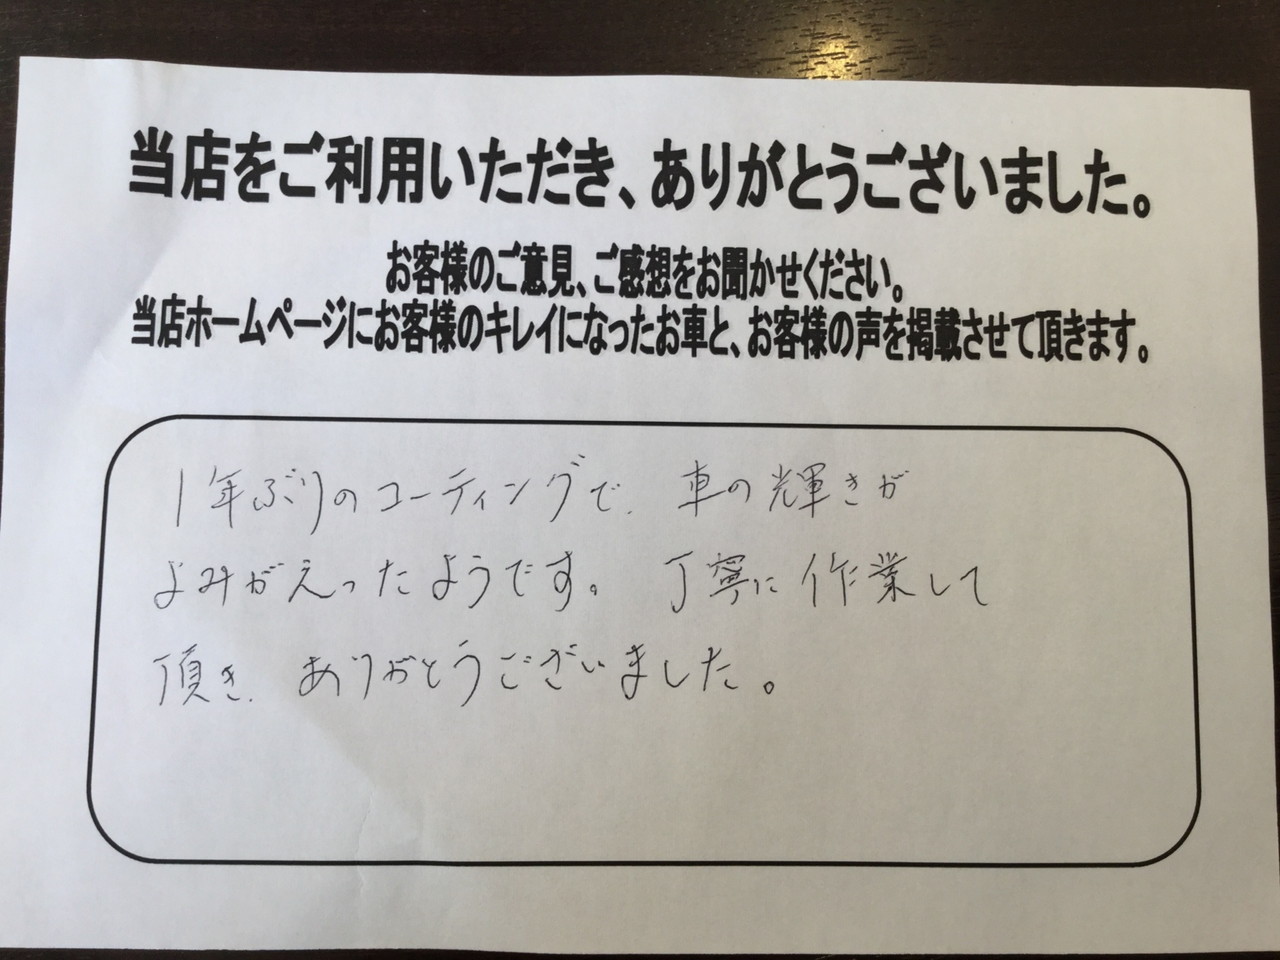 当店をご利用いただき、ありがとうございました。
お客様のご意見、ご感想をお聞かせください。
当店ホームページにお客様のキレイになったお車と、お客様の声を掲載させて頂きます。
1年ぶりのコーティングで、車の輝きが
よみがえったようです。丁寧に作業して
頂き、ありがとうございました。